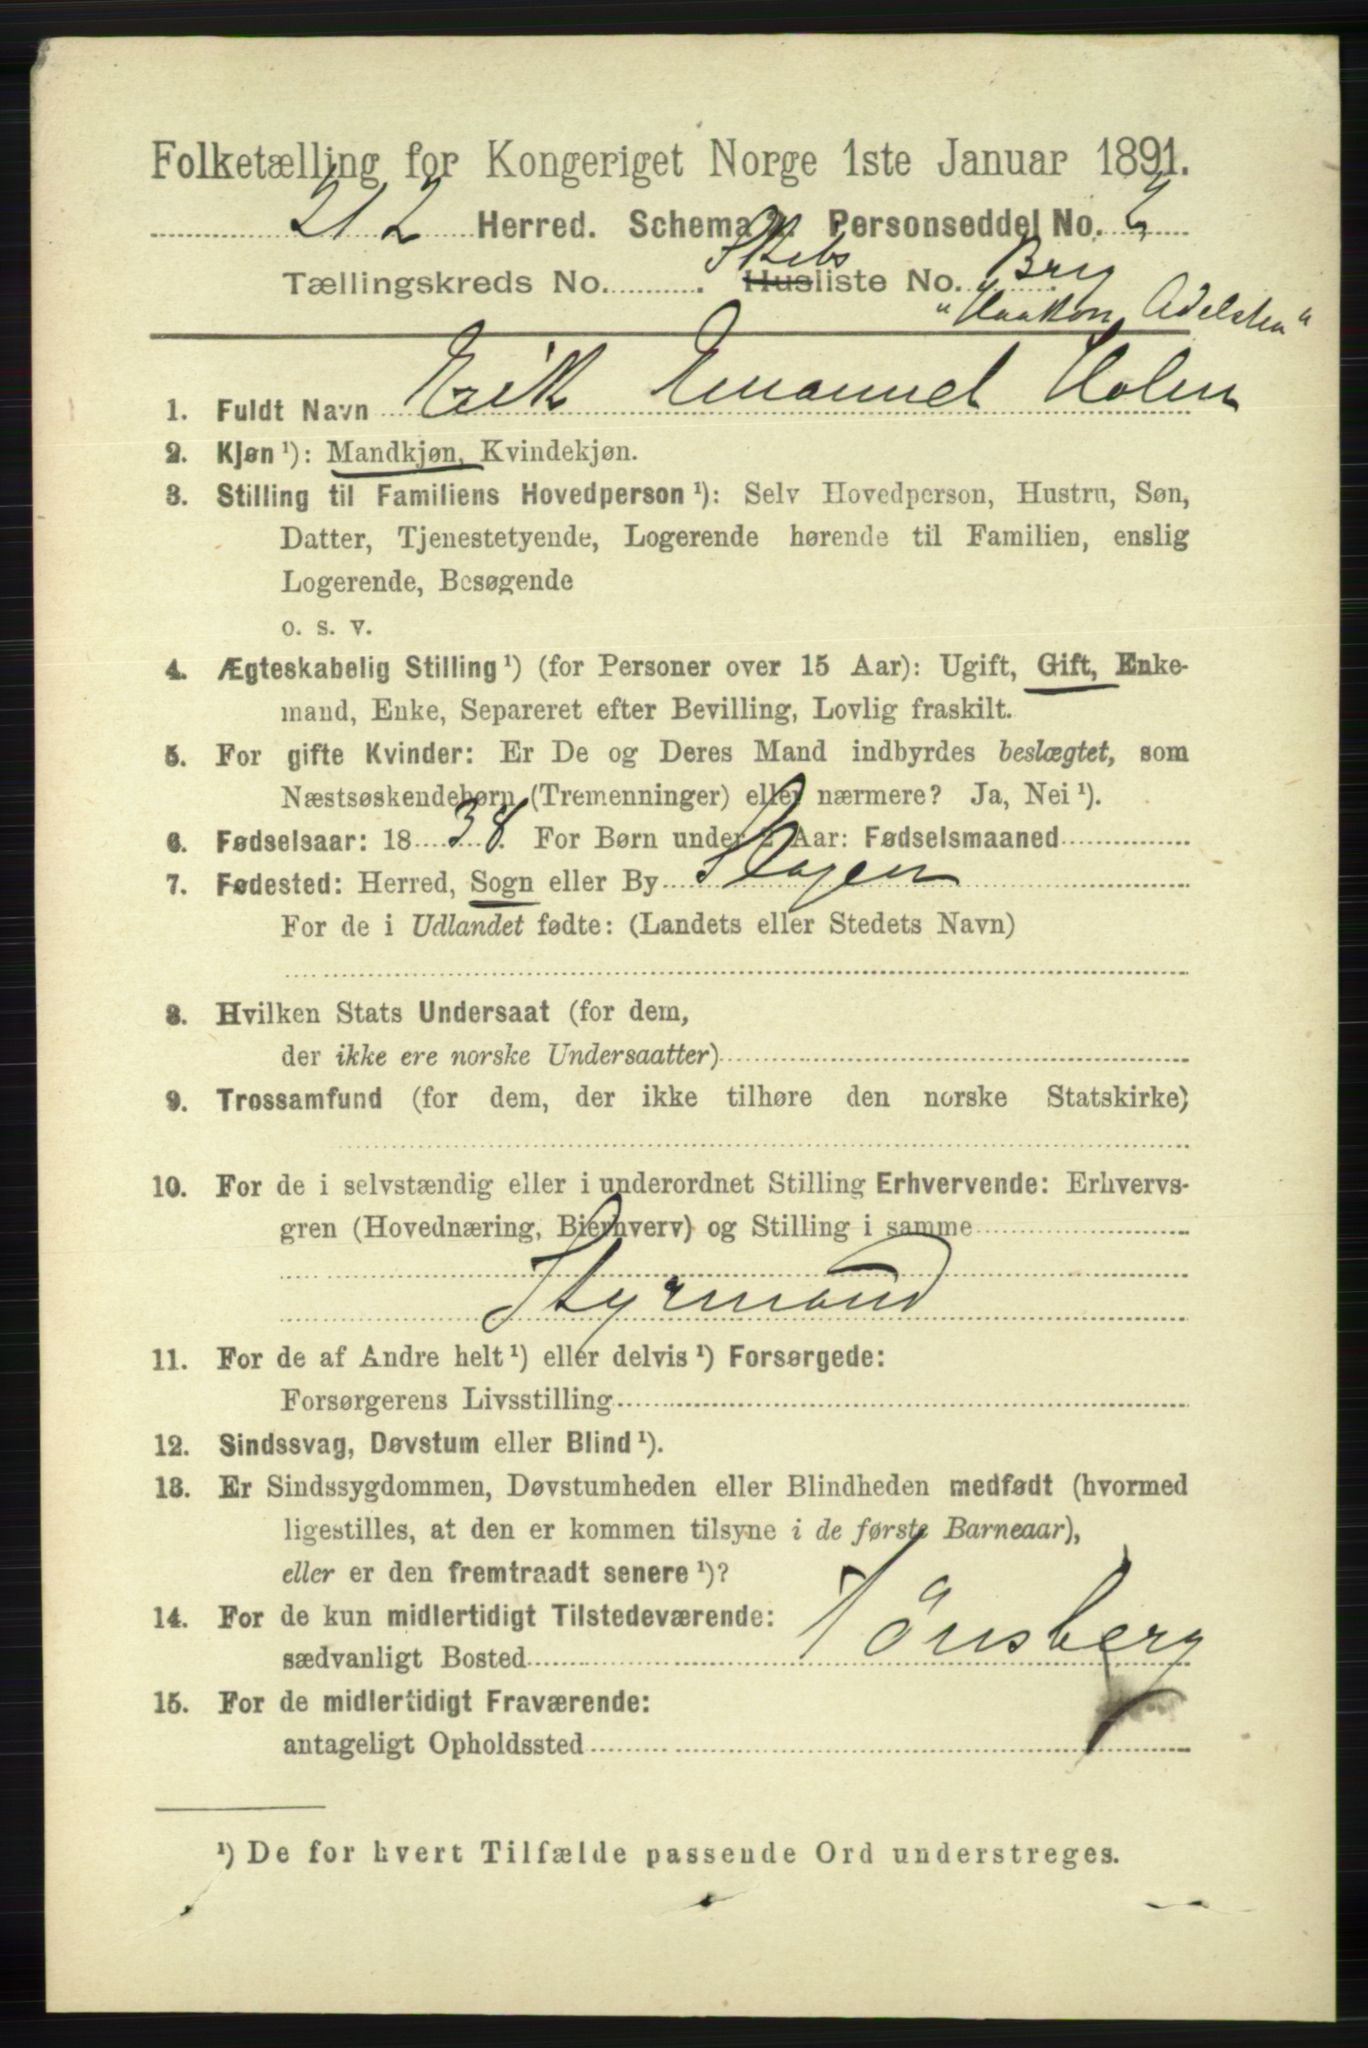 Folketælling for Kongeriget Norge 1ste Januar 1891.
212 Herred. Schema 2. Personseddel No. 2
Tællingskreds No. . Skibsliste No. Brig
"Haakon Adelsten"
1. Fuldt Navn Erik Emanuel Holm
2. Kjøn ¹): Mandkjøn, Kvindekjøn.
3. Stilling til Familiens Hovedperson ¹): Selv Hovedperson, Hustru, Søn,
Datter, Tjenestetyende, Logerende hørende til Familien, enslig
Logerende, Besøgende
o. s. v.
4. Ægteskabelig Stilling ¹) (for Personer over 15 Aar): Ugift, Gift, Enke-
mand, Enke, Separeret efter Bevilling, Lovlig fraskilt.
5. For gifte Kvinder: Er De og Deres Mand indbyrdes beslægtet, som
Næstsøskendebørn (Tremenninger) eller nærmere? Ja, Nei ¹).
6. Fødselsaar: 1838. For Børn under 2 Aar: Fødselsmaaned
7. Fødested: Herred, Sogn eller By Slagen
For de i Udlandet fødte: (Landets eller Stedets Navn)
8. Hvilken Stats Undersaat (for dem,
der ikke ere norske Undersaatter)
9. Trossamfund (for dem, der ikke tilhøre den norske Statskirke)
10. For de i selvstændig eller i underordnet Stilling Erhvervende: Erhvervs-
gren (Hovednæring, Bierhverv) og Stilling i samme
Styrmand
11. For de af Andre helt ¹) eller delvis ¹) Forsørgede:
Forsørgerens Livsstilling
12. Sindssvag, Døvstum eller Blind ¹).
13. Er Sindssygdommen, Døvstumheden eller Blindheden medfødt (hvormed
ligestilles, at den er kommen tilsyne i de første Barneaar),
eller er den fremtraadt senere ¹)?
14. For de kun midlertidigt Tilstedeværende:
sædvanligt Bosted Tönsberg
15. For de midlertidigt Fraværende:
antageligt Opholdssted
¹) De for hvert Tilfælde passende Ord understreges.